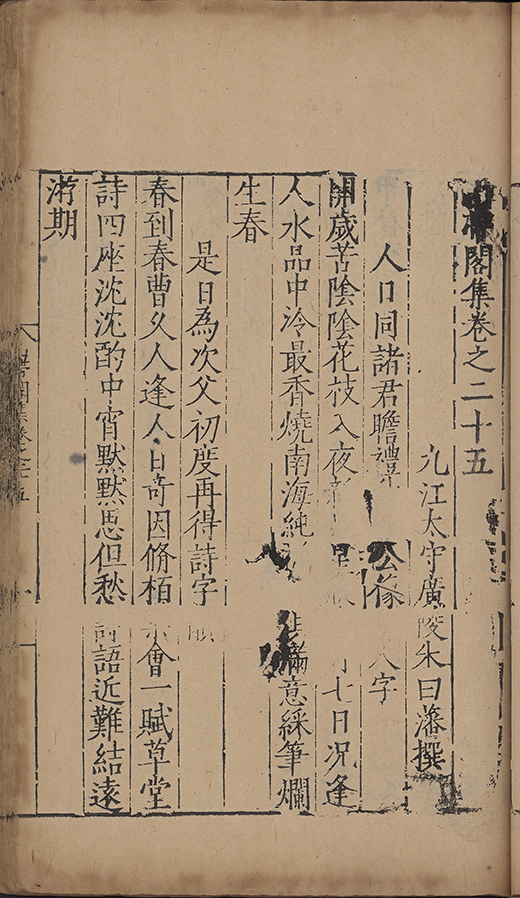 閣集卷之二十五
九江太守廣陵朱曰藩撰
人日同諸君瞻禮 公像 人字
開歲苦陰陰花枝入夜 七日況逢
人水品中泠最香燒南海純 滿意綵筆爛
生春
是日為次父初度再得詩字
春到春曹久人逢人日奇因脩栢 會一賦草堂
詩四座沈沈酌中宵默默思但愁 語近難結遠
游期